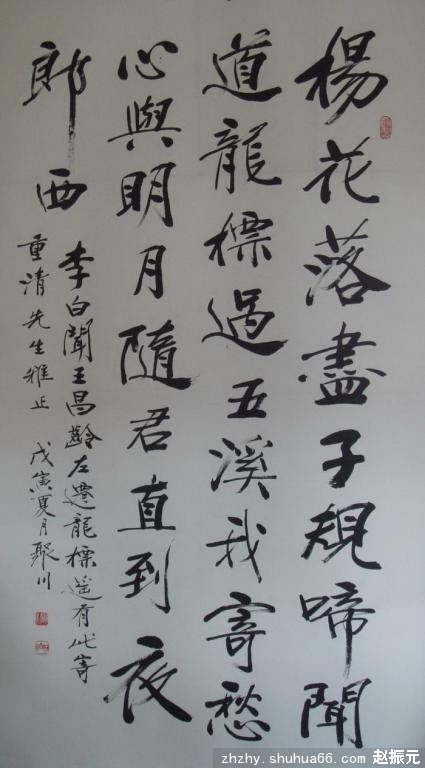 楊花落盡子規啼聞
道龍標過五溪我寄愁
心與明月隨君直到夜
郎西
李白聞王昌齡左遷龍標遥有此寄
重清先生雅正
戊寅夏月聚川
zhzhy.shuhua66.com 赵振元